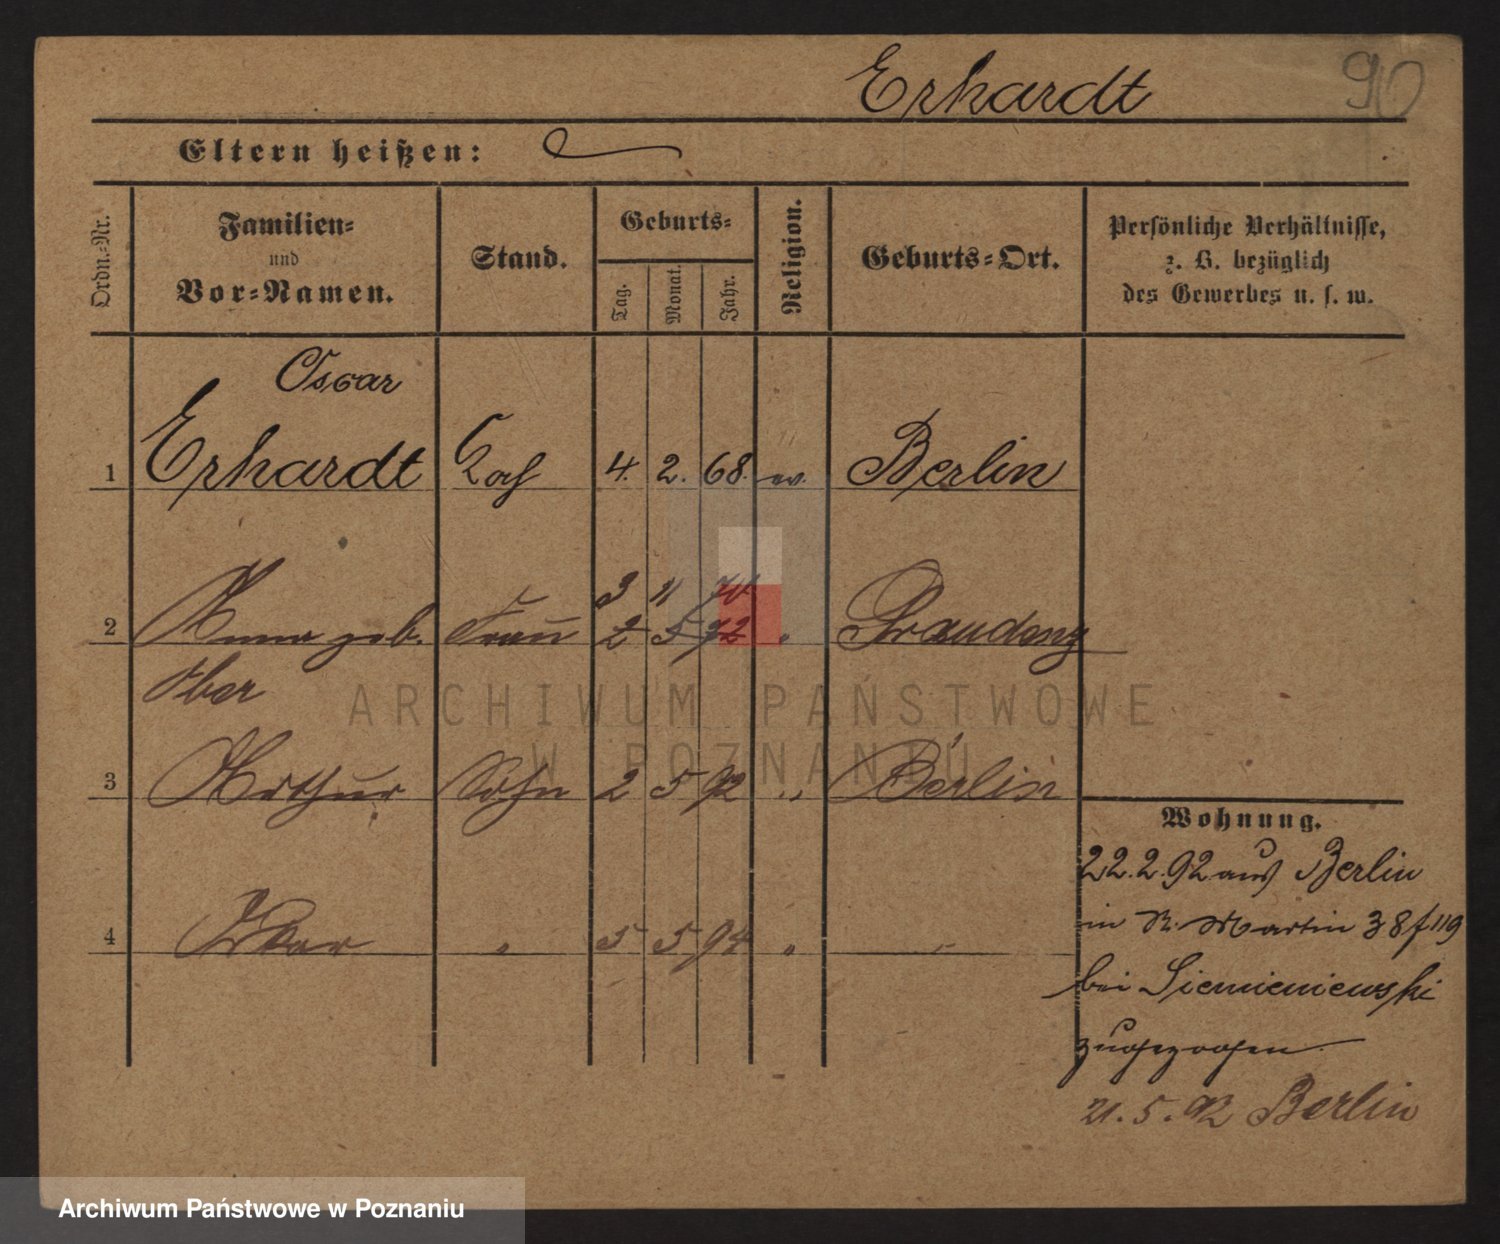 Erhardt 90
Eltern heißen:
Ordn.-Nr.
Familien-
und
Vor-Namen.
Stand.
Geburts-
Tag.
Monat.
Jahr.
Religion.
Geburts-Ort.
Persönliche Verhältnisse,
z. B. bezüglich
des Gewerbes u. s. w.
Oscar
1 Erhardt Koch 4. 2. 68. ev. Berlin
3 11 70
2 Anna geb. Frau 2 5 92 " Graudenz
3 Arthur Sohn 2 5 92 " Berlin
4 Oskar " 5 5 94 " "
Wohnung.
22.2.92 aus Berlin
in St. Martin 38
bei Siemieniewski
zugezogen
21. 5. 92 Berlin
ARCHIWUM PAŃSTWOWE
W POZNANIU
Archiwum Państwowe w Poznaniu